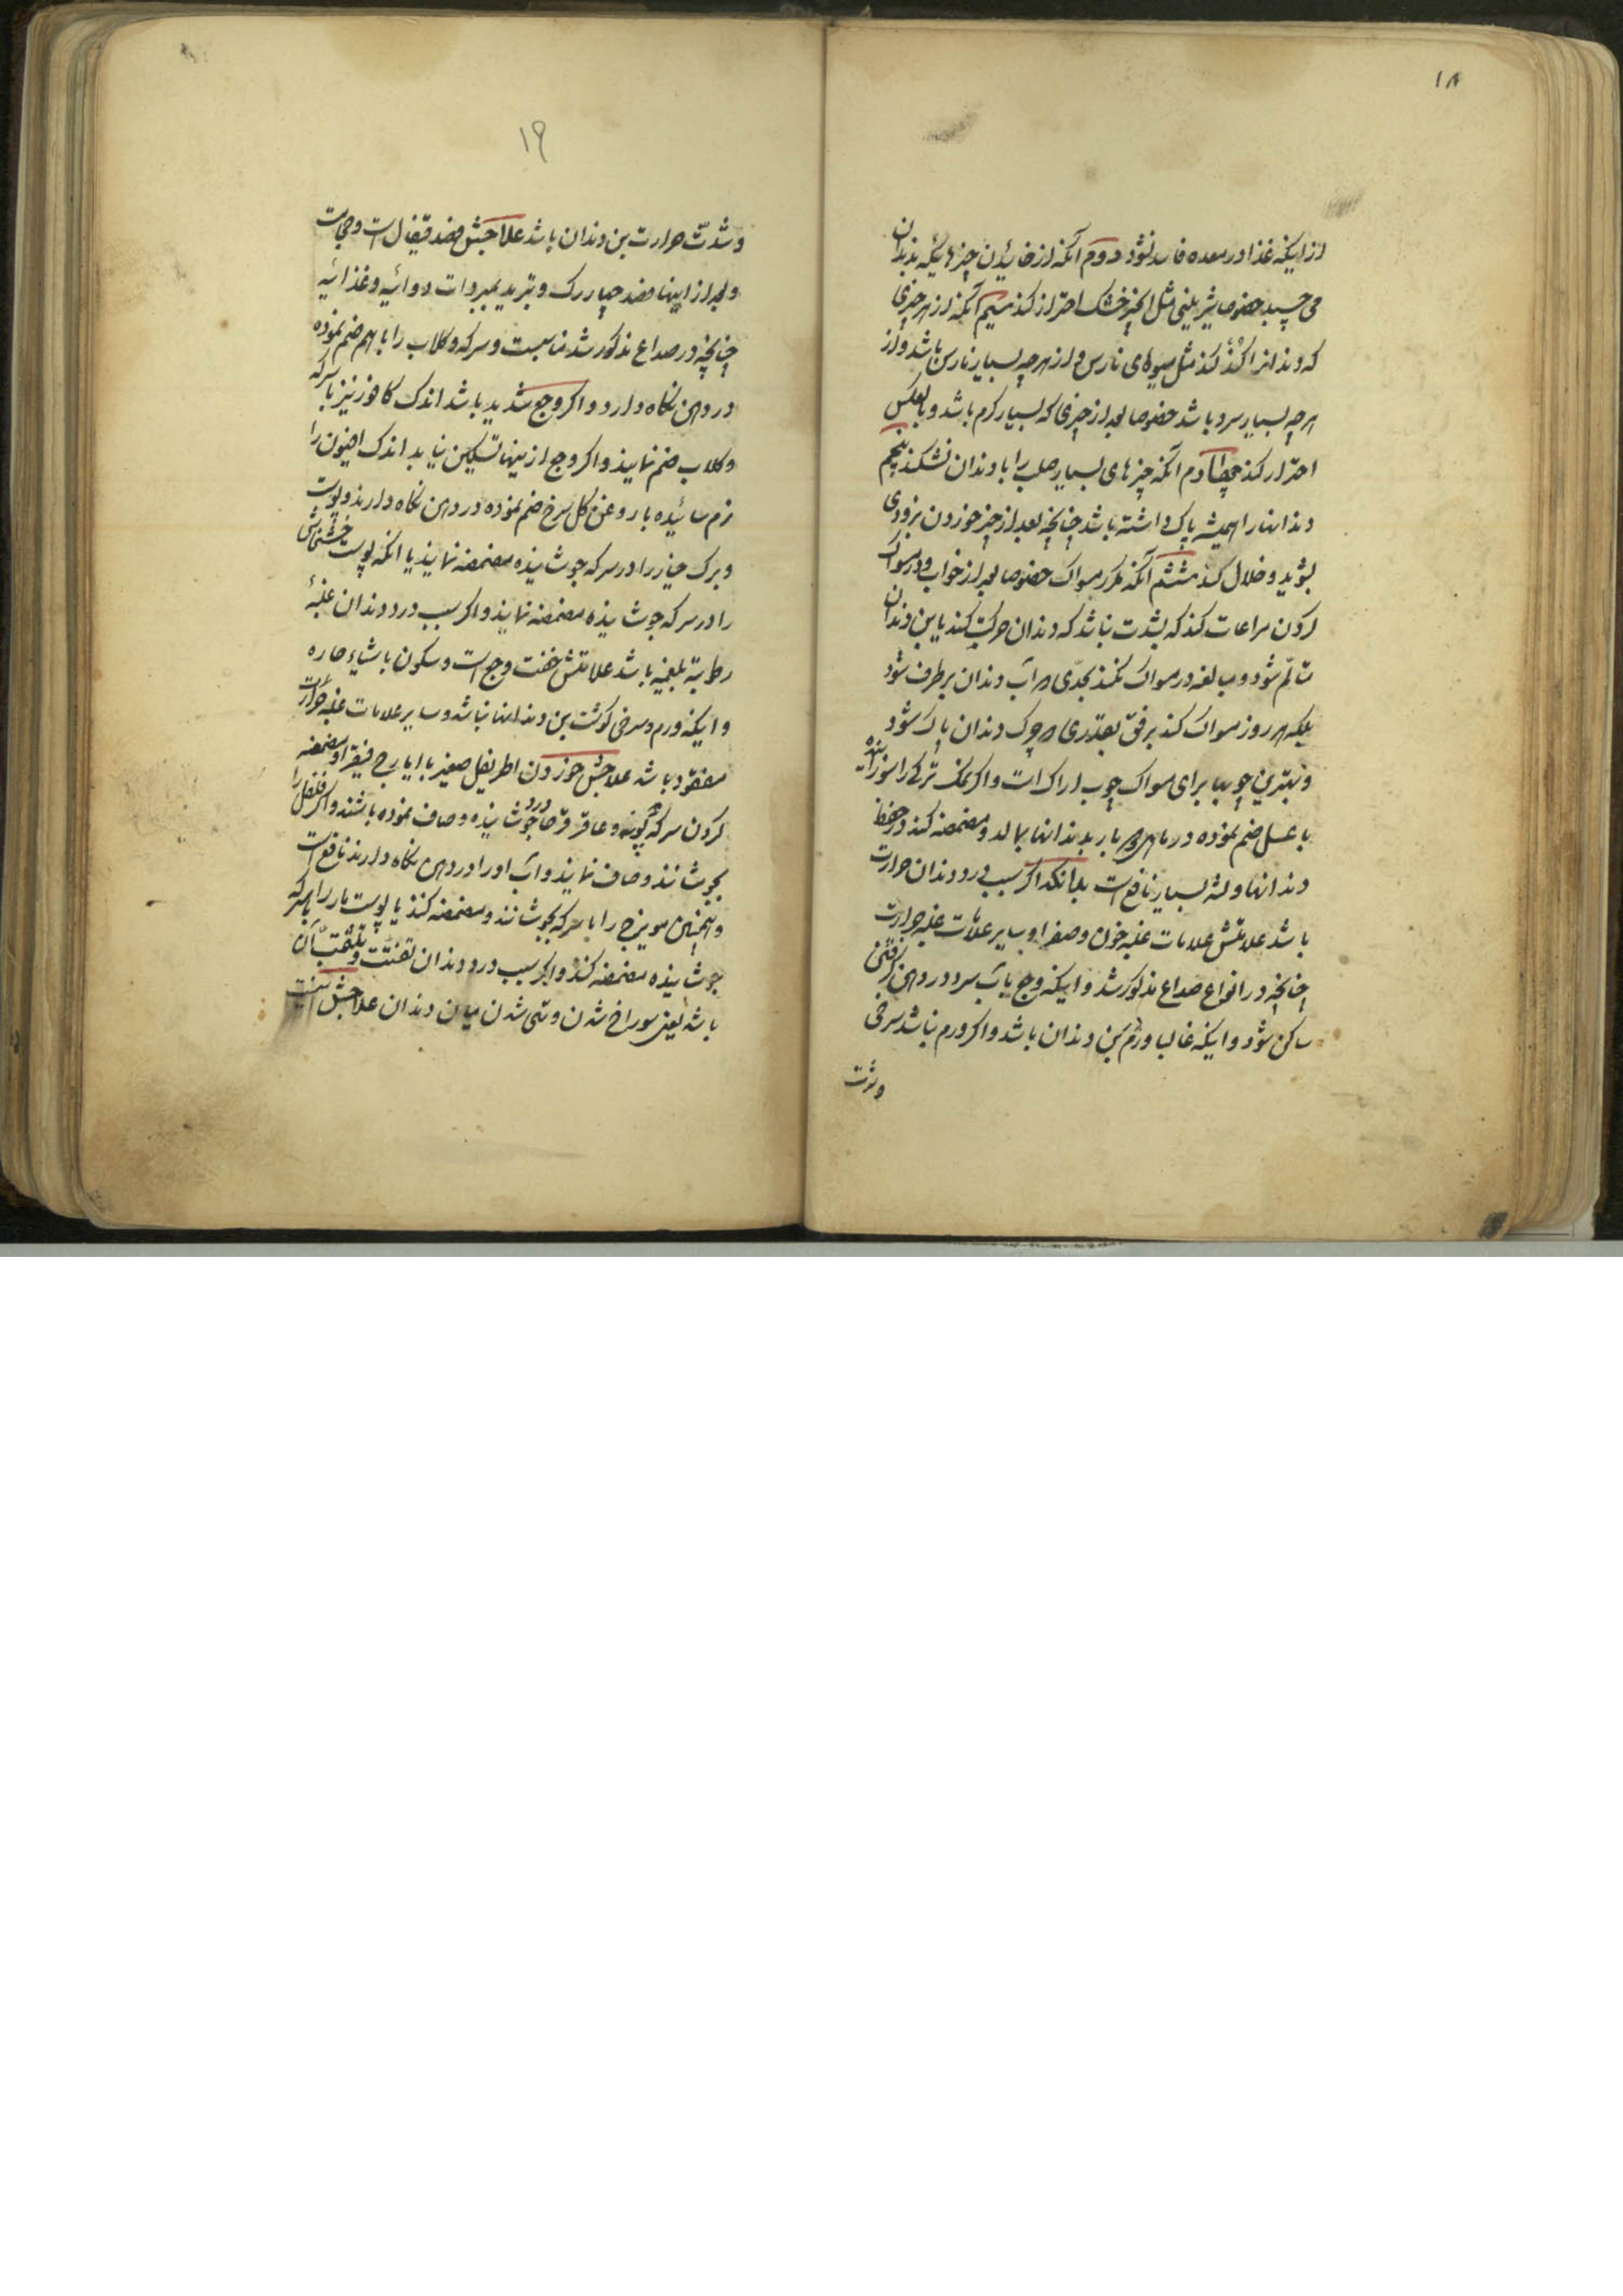 ۱۸
از اینکه غذا در معده فاسد نشود دوم آنکه از خائیدن چیزهائیکه بدندان
می چسبد خصوصا شیرینی مثل انجیر خشک احتراز کند سیم آنکه از هر چیزی
که دندانرا کند کند مثل میوهای نارس و از هرچه بسیار نارس باشد و از
هرچه بسیار سرد باشد خصوصا بعد از چیزی که بسیار کرم باشد و بالعکس
احتراز کند چهارم آنکه چیزهای بسیار صلب را با دندان نشکند پنجم
دندانها را همیشه پاک داشته باشد چنانچه بعد از چیز خوردن بزودی
بشوید و خلال کند ششم آنکه مکرر مسواک خصوصا بعد از خواب و در مسواک
کردن مراعات کند که بشدت نباشد که دندان حرکت کند یا بن دندان
متألم شود و مبالغه در مسواک نکند بحدی که آب دندان برطرف شود
بلکه هر روز مسواک کند برفق بقدری که چرک دندان پاک شود
و بهترین چوبها برای مسواک چوب اراک است و اکر نمک ترکی را سوزانیده
با عسل ضم نموده در ماهی بار بدندانها بمالد و مضمضه کند در حفظ
دندانها و لثه بسیار نافع است بدانکه اکر سبب درد دندان حرارت
باشد علامتش علامات غلبه خون و صفرا و سایر علامات غلبه حرارت
چنانچه در انواع صداع مذکور شد و اینکه وجع بآب سرد در دهن کرفتن
ساکن شود و اینکه غالبا ورم بن دندان باشد و اکر ورم نباشد سرخی
وشدت
۱۹
و شدّت حرارت بن دندان باشد علاجش فصد قیفال است و حجامت
و بعد از اینها فصد چهاررک و تبرید بمبردات دوائیه و غذائیه
چنانچه در صداع مذکور شد مناسبست و سرکه و کلاب را باهم ضم نموده
در دهن نکاه دارد و اکر وجع شدید باشد اندک کافور نیز با سرکه
و کلاب ضم نمایند و اکر وجع ازینها تسکین نیابد اندک افیون را
نرم سائیده با روغن کل سرخ ضم نموده در دهن نکاه دارند و پوست
و برک خیار را در سرکه جوشانیده مضمضه نمایند یا انکه پوست خشخاش
را در سرکه جوشانیده مضمضه نمایند و اکر سبب درد دندان غلبهٔ
رطوبة بلغمیه باشد علامتش خفت وجع است و سکون باشیاء حاره
و اینکه ورم و سرخی کوشت بن دندانها نباشد و سایر علامات غلبه حرارت
مفقود باشد علاجش خوردن اطریفل صغیر با ایارج فیقرا و مضمضه
کردن سرکه که پونه و عاقرقرحا درو جوشانیده و صاف نموده باشند و اکر فلفل را
بجوشانند و صاف نمایند و آب او را در دهن نکاه دارند نافع است
و همچنین مویزج را با سرکه بجوشانند و مضمضه کنند یا پوست مار را با سرکه
جوشانیده مضمضه کند و اکر سبب درد دندان تفتت و تثقب آن
باشد یعنی سوراخ شدن و تهی شدن میان دندان علاجش اینست